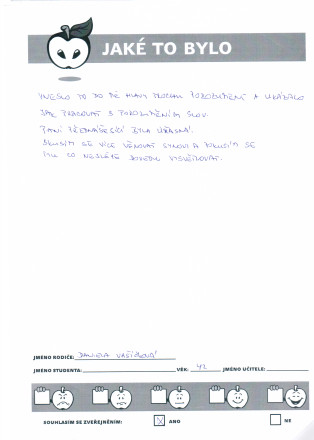 JAKÉ TO BYLO
VNESLO TO DO MÉ HLAVY TROCHU POROZUMĚNÍ A UKÁZALO
JAK PRACOVAT S POROZUMĚNÍM SLOV.
PANÍ PŘEDNÁŠEJÍCÍ BYLA ÚŽASNÁ!
SE VÍCE VĚNOVAT SYNOVI A POKUSÍM SE
MU CO NEJLÉPE DOVEDU VYSVĚTLOVAT.
JMÉNO RODIČE: DANIELA
JMÉNO STUDENTA: VĚK: 42 JMÉNO UČITELE:
SOUHLASÍM SE ZVEŘEJNĚNÍM: X ANO NE